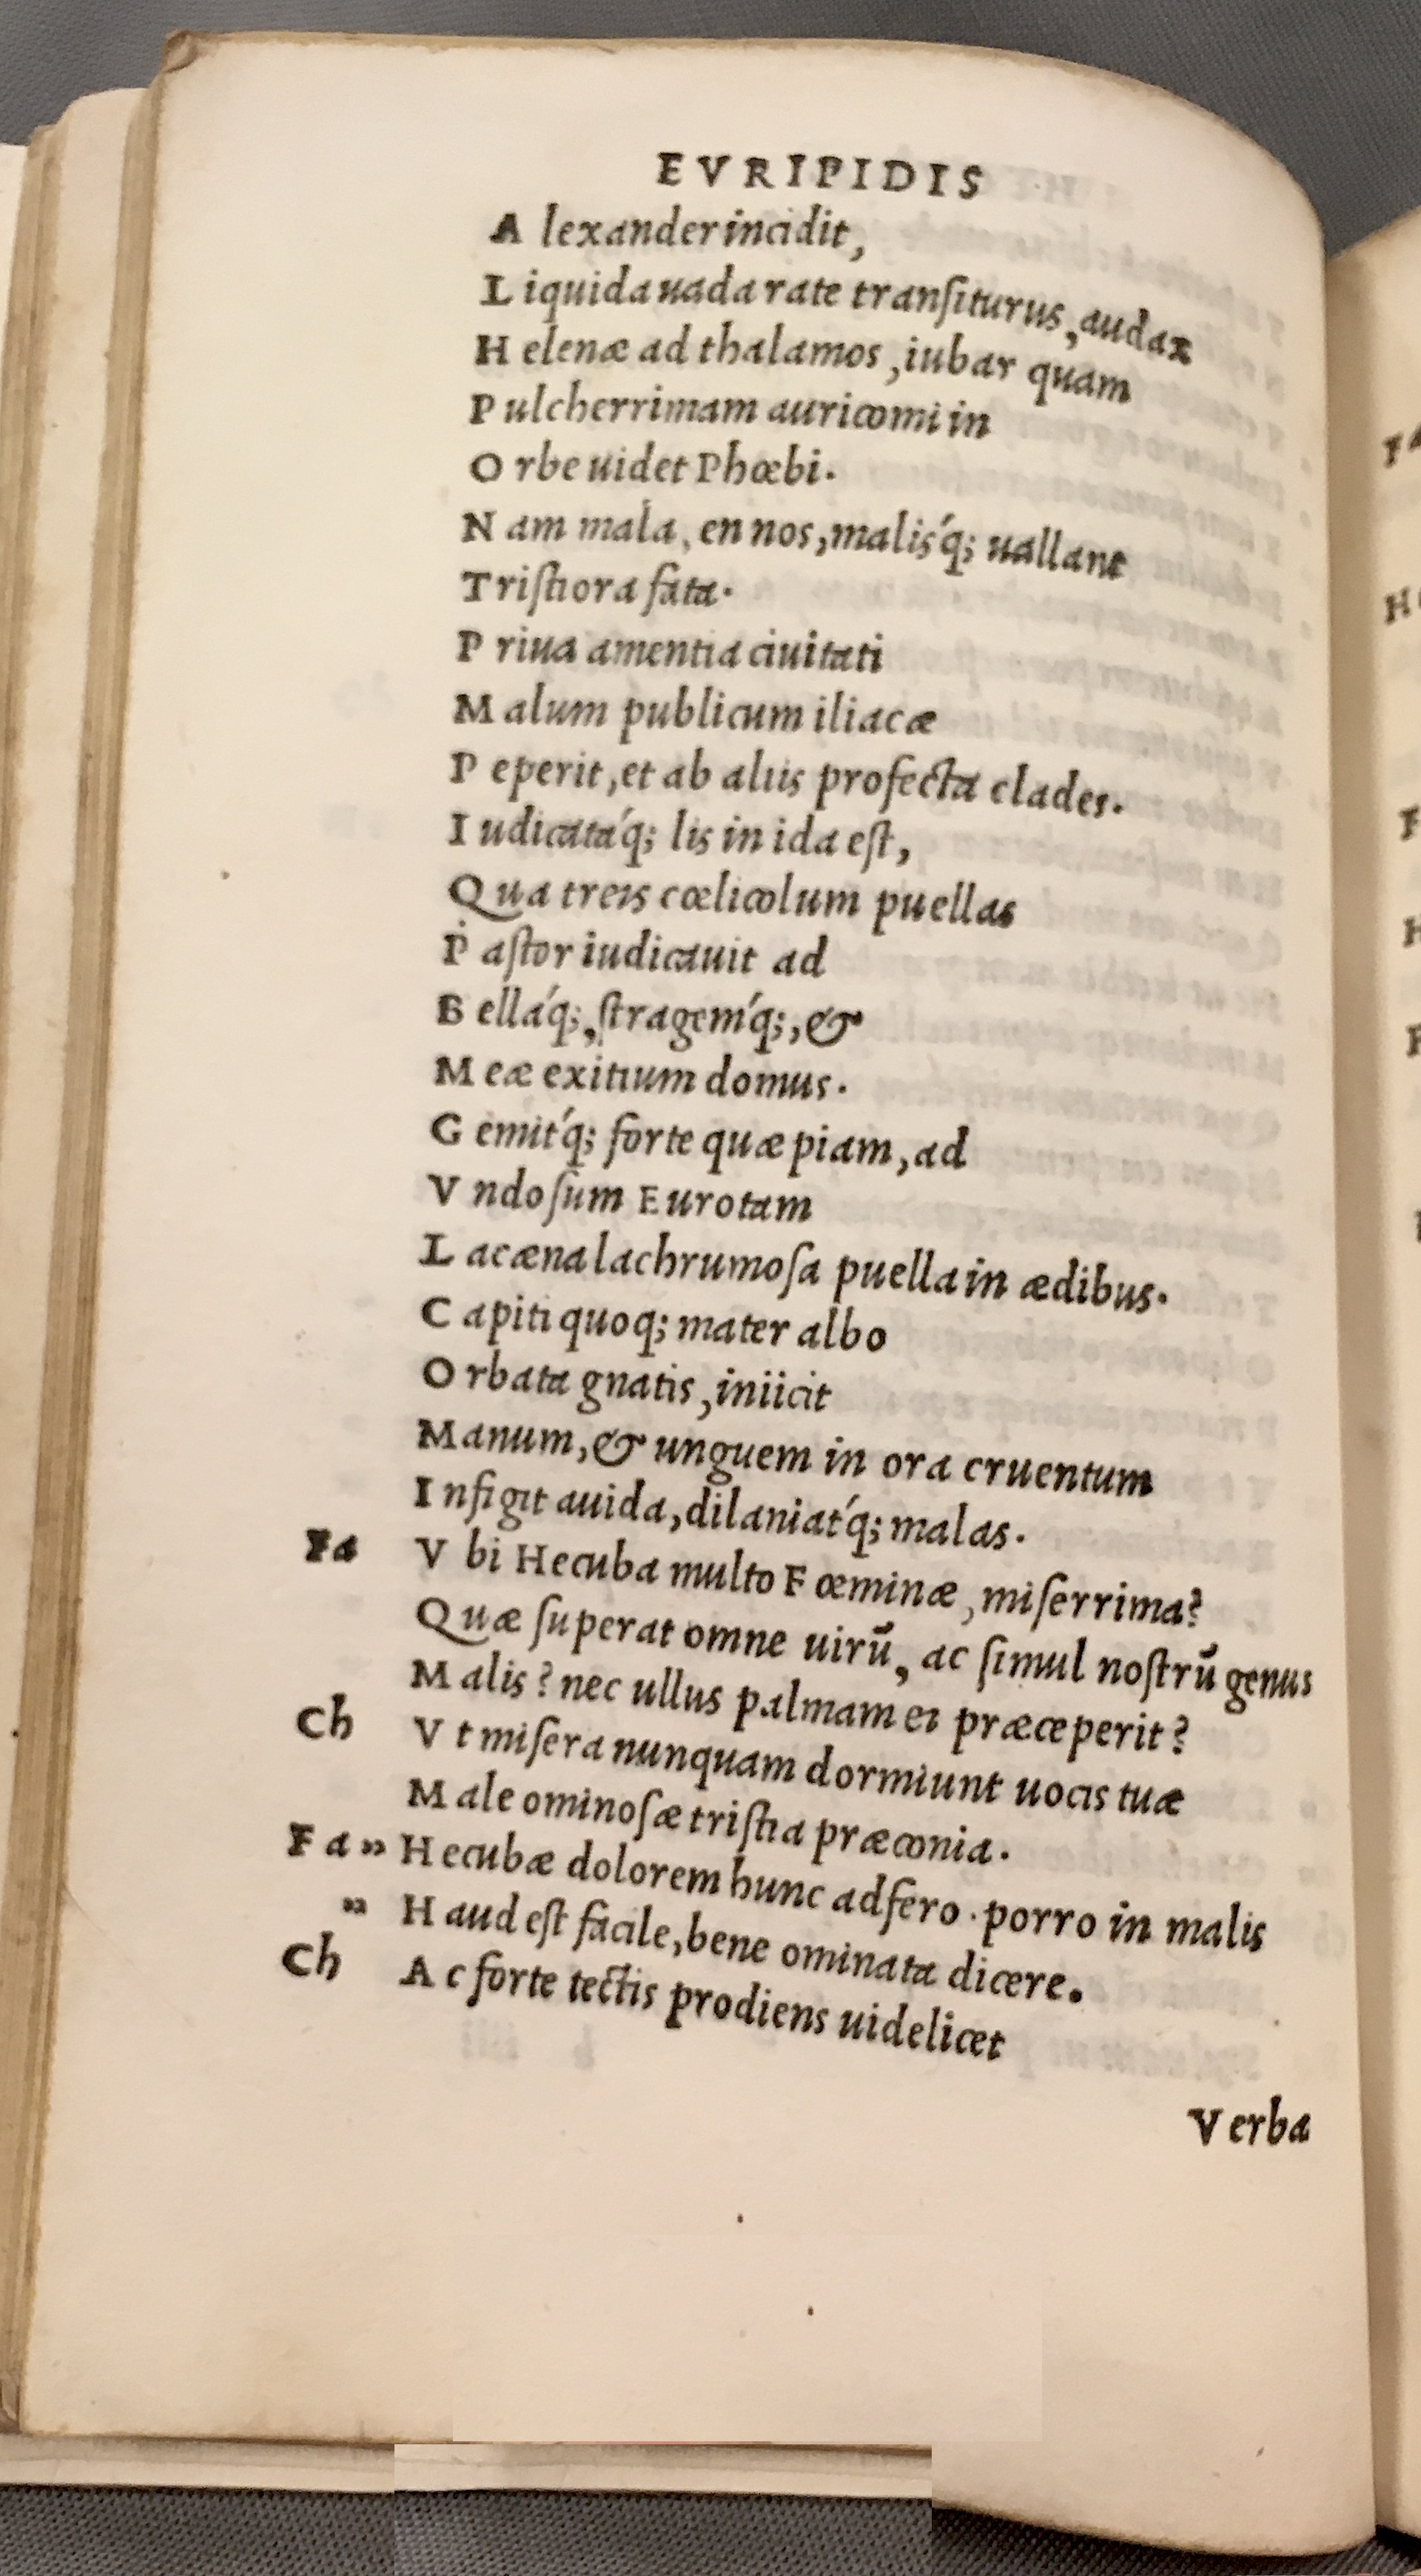 EVRIPIDIS
A lexander incidit,
L iquida uada rate transiturus, audax
H elenæ ad thalamos, iubar quam
P ulcherrimam auricomi in
O rbe uidet Phœbi.
N am mala, en nos, malis'q; uallant
T ristiora fata.
P riua amentia ciuitati
M alum publicum iliacæ
P eperit, et ab aliis profecta clades.
I udicatá'q; lis in ida est,
Q ua treis cœlicolum puellas
P astor iudicauit ad
B ellá'q;, stragem'q;, &
M eæ exitium domus.
G emit'q; forte quæpiam, ad
V ndosum Eurotam
L acæna lachrumosa puella in ædibus.
C apiti quoq; mater albo
O rbata gnatis, iniicit
M anum, & unguem in ora cruentum
I nfigit auida, dilaniat'q; malas.
Fa V bi Hecuba multo Fœminæ, miserrima?
Q uæ superat omne uirū, ac simul nostrū genus
M alis? nec ullus palmam ei præceperit?
Ch V t misera nunquam dormiunt uocis tuæ
M ale ominosæ tristia præconia.
Fa » H ecubæ dolorem hunc adfero. porro in malis
» H aud est facile, bene ominata dicere.
Ch A c forte tectis prodiens uidelicet
Verba